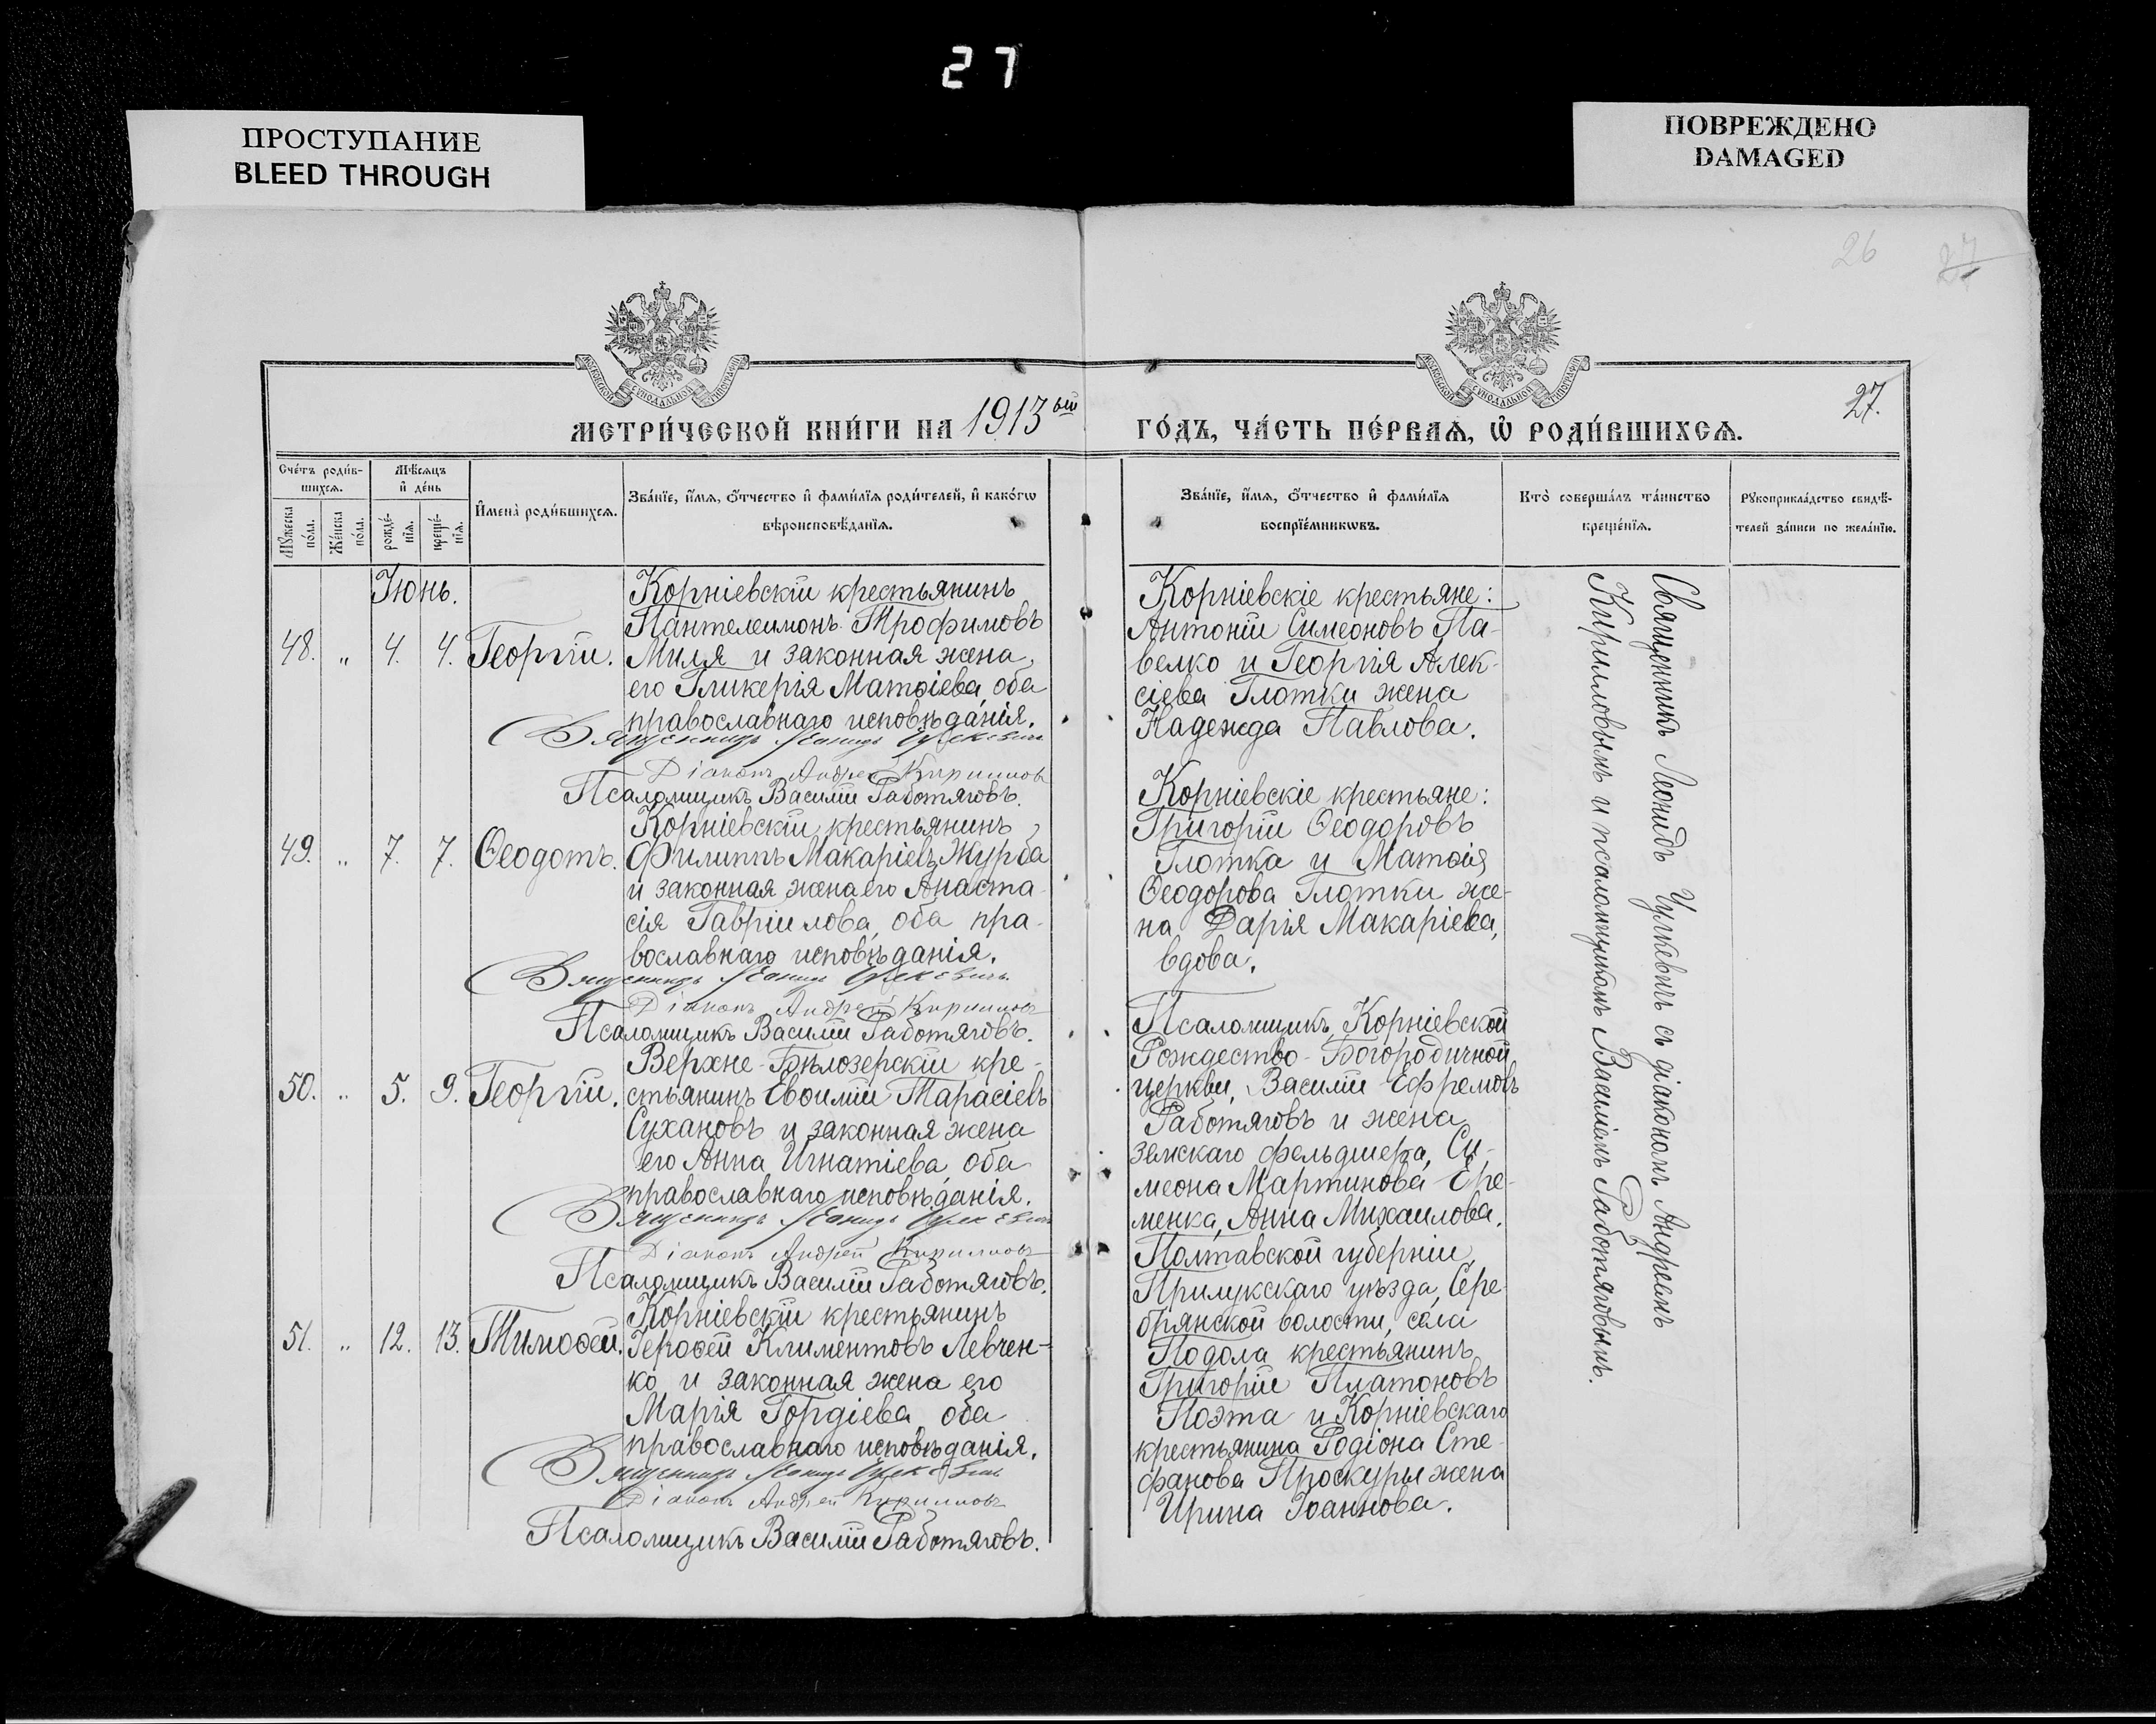 27
ПРОСТУПАНИЕ
BLEED THROUGH
ПОВРЕЖДЕНО
DAMAGED
26
27
МОСКОВСКОЙ СУНОДАЛЬНОЙ ТИПОГРАФІИ
МОСКОВСКОЙ СУНОДАЛЬНОЙ ТИПОГРАФІИ
МЕТРИ́ЧЕСКОЙ КНИ́ГИ НА 1913 ый
ГО́ДЪ, ЧА́СТЬ ПЕ́РВАѦ, Ѡ РОДИ́ВШИХСѦ.
27.
Сче́тъ роди́в-
шихсѧ.
Мѣ́сѧцъ
и҆ де́нь
Мꙋ́жеска
по́ла.
Же́нска
по́ла.
рожде́-
нїѧ.
креще́-
нїѧ.
И҆мена̀ роди́вшихсѧ.
Зва́нїе, и҆́мѧ, ѻ҆́тчество и҆ фами́лїѧ роди́телей, и҆ како́гѡ
вѣроисповѣ́данїѧ.
Зва́нїе, и҆́мѧ, ѻ҆́тчество и҆ фами́лїѧ
воспрїе́мникѡвъ.
Кто̀ соверша́лъ та́инство
креще́нїѧ.
Рꙋкоприкла́дство свидѣ́-
телей за́писи по жела́нїю.
Іюнь.
48. „ 4. 4. Георгій.
Корніевскій крестьянинъ
Пантелеимонъ Трофимовъ
Миля и законная жена
его Гликерія Матѳіева, оба
православнаго исповѣданія.
Священникъ Леонидъ Цулкевичъ
Діаконъ Андрей Кирилловъ
Псаломщикъ Василій Работяговъ.
Корніевскіе крестьяне:
Антоній Симеоновъ Па-
велко и Георгія Алек-
сіева Глотки жена
Надежда Павлова.
49. „ 7. 7. Ѳеодотъ.
Корніевскій крестьянинъ
Филиппъ Макаріевъ Журба
и законная жена его Анаста-
сія Гавріилова, оба пра-
вославнаго исповѣданія.
Священникъ Леонидъ Цулкевичъ
Діаконъ Андрей Кирилловъ
Псаломщикъ Василій Работяговъ.
Корніевскіе крестьяне:
Григорій Ѳеодоровъ
Глотка и Матѳія
Ѳеодорова Глотки же-
на Дарія Макаріева,
вдова.
50. „ 5. 9. Георгій.
Верхне-Бѣлозерскій кре-
стьянинъ Евѳимій Тарасіевъ
Сухановъ и законная жена
его Анна Игнатіева, оба
православнаго исповѣданія.
Священникъ Леонидъ Цулкевичъ
Діаконъ Андрей Кирилловъ
Псаломщикъ Василій Работяговъ.
Псаломщикъ Корніевской
Рождество-Богородичной
церкви, Василій Ефремовъ
Работяговъ и жена
земскаго фельдшера, Си-
меона Мартинова Ере-
менка, Анна Михаилова.
51. „ 12. 13. Тимоѳей.
Корніевскій крестьянинъ
Іероѳей Климентовъ Левчен-
ко и законная жена его
Марія Гордіева, оба
православнаго исповѣданія.
Священникъ Леонидъ Цулкевичъ
Діаконъ Андрей Кирилловъ
Псаломщикъ Василій Работяговъ.
Полтавской губерніи,
Прилукскаго уѣзда, Сере-
брянской волости, села
Подола крестьянинъ
Григорій Платоновъ
Поэта и Корніевскаго
крестьянина Родіона Сте-
фанова Проскуры жена
Ирина Іоаннова.
Священникъ Леонидъ Цулкевичъ съ діакономъ Андреемъ
Кирилловымъ и псаломщикомъ Василіемъ Работяговымъ.